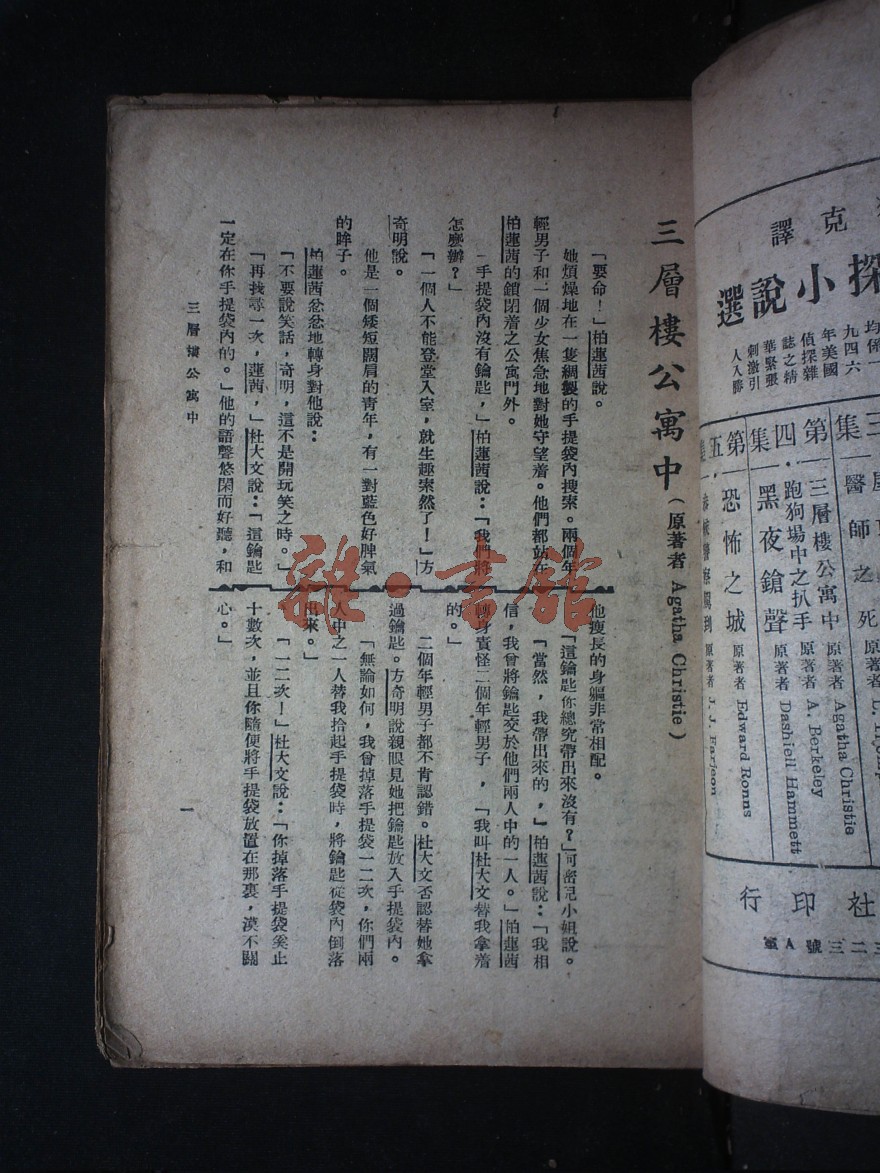 三層樓公寓中（原著者 Agatha Christie）
「要命！」柏蓮茜說。
她煩燥地在一隻綢製的手提袋內搜索。兩個年
輕男子和一個少女焦急地對她守望着。他們都站在
柏蓮茜的鎖閉着之公寓門外。
「手提袋內沒有鑰匙，」柏蓮茜說：「我們將
怎麼辦？」
「一個人不能登堂入室，就生趣索然了！」方
奇明說。
他是一個矮短闊肩的青年，有一對藍色好脾氣
的眸子。
柏蓮茜忿忿地轉身對他說：
「不要說笑話，奇明，這不是開玩笑之時。」
「再找尋一次，蓮茜，」杜大文說：「這鑰匙
一定在你手提袋內的。」他的語聲悠閑而好聽，和
他瘦長的身軀非常相配。
「這鑰匙你總究帶出來沒有？」可密記小姐說。
「當然，我帶出來的，」柏蓮茜說：「我相
信，我曾將鑰匙交於他們兩人中的一人。」柏蓮茜
轉身責怪二個年輕男子，「我叫杜大文替我拿着
的。」
二個年輕男子都不肯認錯。杜大文否認替她拿
過鑰匙。方奇明說親眼見她把鑰匙放入手提袋內。
「無論如何，我曾掉落手提袋一二次，你們兩
人中之一人替我拾起手提袋時，將鑰匙從袋內倒落
出來。」
「一二次！」杜大文說：「你掉落手提袋奚止
十數次，並且你隨便將手提袋放置在那裏，漠不關
心。」
三層樓公寓中
一
克譯
探小說選
均係一
九四六
年美國
偵探雜
誌之精
華緊張
刺激引
人入勝
三集
醫師之死 原著者
第四集
三層樓公寓中 原著者 Agatha Christie
跑狗場中之扒手 原著者 A. Berkeley
黑夜鎗聲 原著者 Dashiell Hammett
第五
恐怖之城 原著者 Edward Ronns
原著者 J. J. Farjeon
社印行
三二三號A室
雜·書館